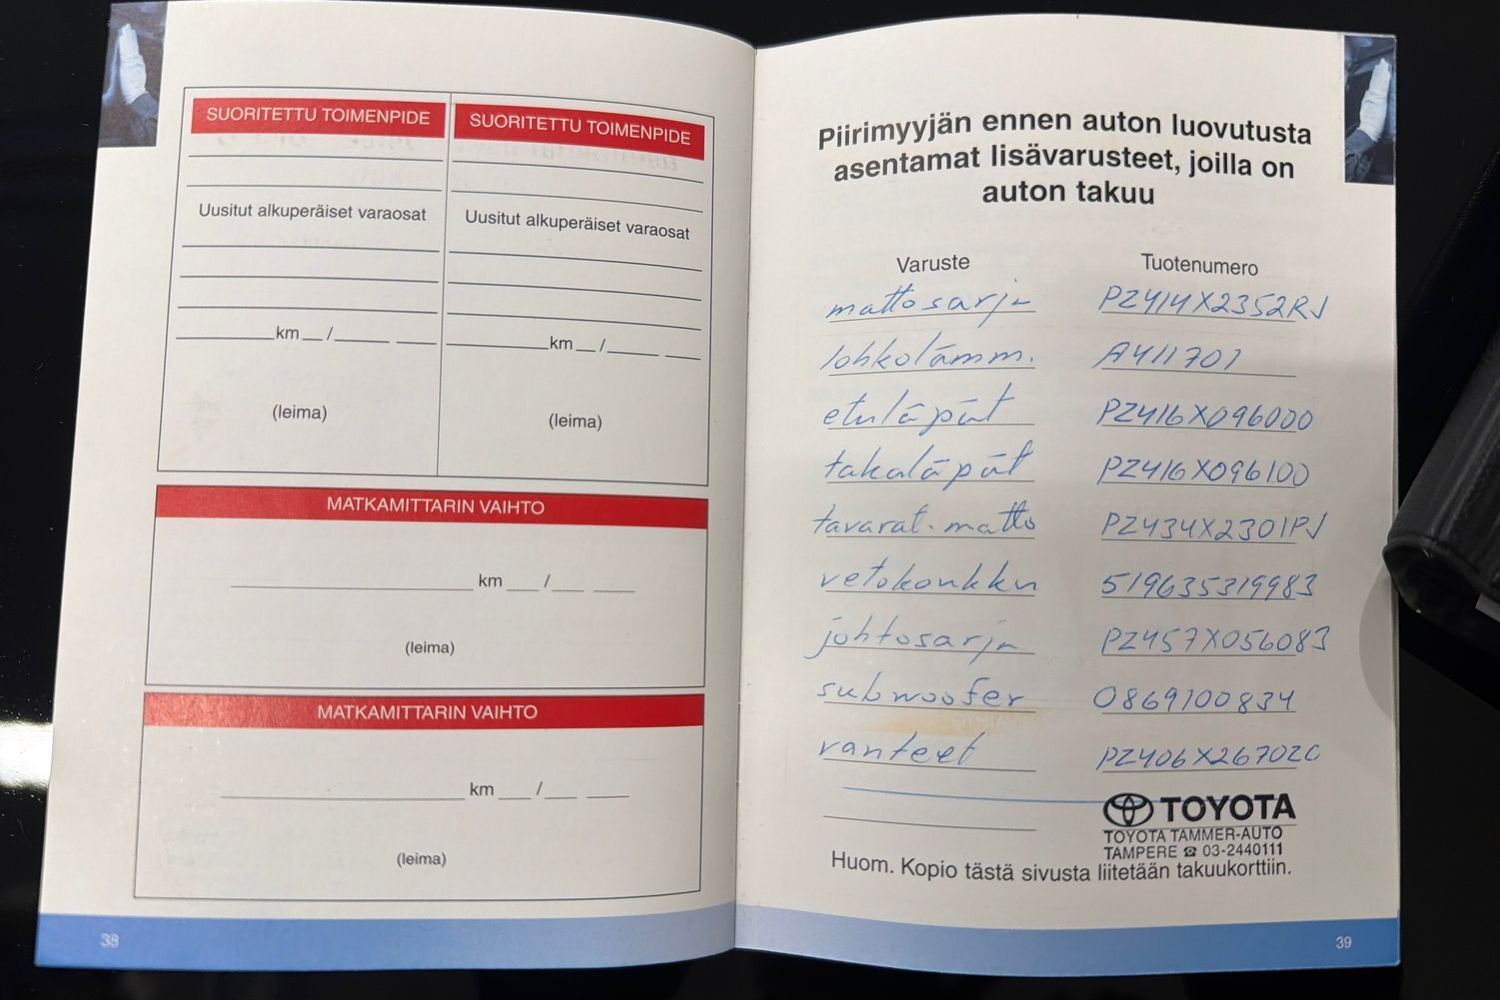 SUORITETTU TOIMENPIDE
Uusitut alkuperäiset varaosat
km / 
(leima)
SUORITETTU TOIMENPIDE
Uusitut alkuperäiset varaosat
km /
(leima)
MATKAMITTARIN VAIHTO
km /
(leima)
MATKAMITTARIN VAIHTO
km /
(leima)
38
Piirimyyjän ennen auton luovutusta
asentamat lisävarusteet, joilla on
auton takuu
Varuste Tuotenumero
mattosarja PZ414X2352RJ
lohkolämm. A411701
etuläpät PZ416X096000
takaläpät PZ416X096100
tavarat.matto PZ434X2301PJ
vetokoukku 519635319983
johtosarja PZ457X056083
subwoofer 0869100834
vanteet PZ406X2670ZC
TOYOTA
TOYOTA TAMMER-AUTO
TAMPERE ☎ 03-2440111
Huom. Kopio tästä sivusta liitetään takuukorttiin.
39